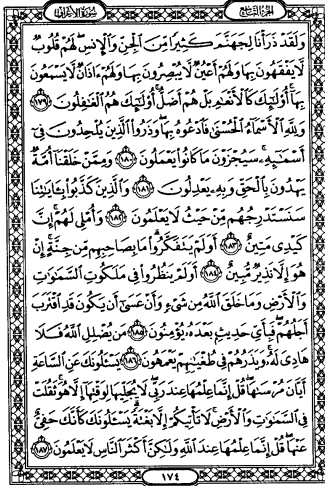 الجزء التاسع
سورة الأعراف
وَلَقَدْ ذَرَأْنَا لِجَهَنَّمَ كَثِيرًا مِّنَ الْجِنِّ وَالْإِنسِ لَهُمْ قُلُوبٌ
لَّا يَفْقَهُونَ بِهَا وَلَهُمْ أَعْيُنٌ لَّا يُبْصِرُونَ بِهَا وَلَهُمْ ءَاذَانٌ لَّا يَسْمَعُونَ
بِهَا أُوْلَٰئِكَ كَالْأَنْعَٰمِ بَلْ هُمْ أَضَلُّ أُوْلَٰئِكَ هُمُ الْغَٰفِلُونَ ١٧٩
وَلِلَّهِ الْأَسْمَاءُ الْحُسْنَىٰ فَادْعُوهُ بِهَا وَذَرُوا الَّذِينَ يُلْحِدُونَ فِي
أَسْمَٰئِهِ سَيُجْزَوْنَ مَا كَانُوا يَعْمَلُونَ ١٨٠ وَمِمَّنْ خَلَقْنَا أُمَّةٌ
يَهْدُونَ بِالْحَقِّ وَبِهِ يَعْدِلُونَ ١٨١ وَالَّذِينَ كَذَّبُوا بِـَٔايَٰتِنَا
سَنَسْتَدْرِجُهُم مِّنْ حَيْثُ لَا يَعْلَمُونَ ١٨٢ وَأُمْلِي لَهُمْ إِنَّ
كَيْدِي مَتِينٌ ١٨٣ أَوَلَمْ يَتَفَكَّرُوا مَا بِصَاحِبِهِم مِّن جِنَّةٍ إِنْ
هُوَ إِلَّا نَذِيرٌ مُّبِينٌ ١٨٤ أَوَلَمْ يَنظُرُوا فِي مَلَكُوتِ السَّمَٰوَٰتِ
وَالْأَرْضِ وَمَا خَلَقَ اللَّهُ مِن شَيْءٍ وَأَنْ عَسَىٰ أَن يَكُونَ قَدِ اقْتَرَبَ
أَجَلُهُمْ فَبِأَيِّ حَدِيثٍ بَعْدَهُ يُؤْمِنُونَ ١٨٥ مَن يُضْلِلِ اللَّهُ فَلَا
هَادِيَ لَهُ وَيَذَرُهُمْ فِي طُغْيَٰنِهِمْ يَعْمَهُونَ ١٨٦ يَسْـَٔلُونَكَ عَنِ السَّاعَةِ
أَيَّانَ مُرْسَىٰهَا قُلْ إِنَّمَا عِلْمُهَا عِندَ رَبِّي لَا يُجَلِّيهَا لِوَقْتِهَا إِلَّا هُوَ ثَقُلَتْ
فِي السَّمَٰوَٰتِ وَالْأَرْضِ لَا تَأْتِيكُمْ إِلَّا بَغْتَةً يَسْـَٔلُونَكَ كَأَنَّكَ حَفِيٌّ
عَنْهَا قُلْ إِنَّمَا عِلْمُهَا عِندَ اللَّهِ وَلَٰكِنَّ أَكْثَرَ النَّاسِ لَا يَعْلَمُونَ ١٨٧
١٧٤